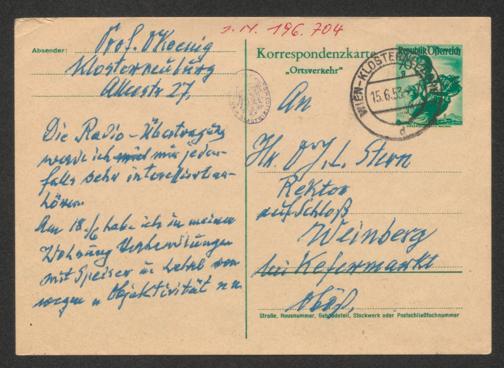 J.N. 196.704
Absender: Prof. OKoenig
Klosterneuburg
Alleestr 27,
Die Radio-Übertragung
werde ich mir jeden-
falls sehr interessiert an-
hören.
Am 18./6 habe ich in meiner
Wohnung
mit Speiser u.
wegen Objektivität
Korrespondenzkarte
„Ortsverkehr"
Republik Österreich
WIEN-KLOSTERNEUBURG
15.6.53
d
An
Hr. J. L. Stern
Rektor
auf Schloß
Weinberg
bei Kefermarkt
Straße, Hausnummer, Gebäudeteil, Stockwerk oder Postschließfachnummer